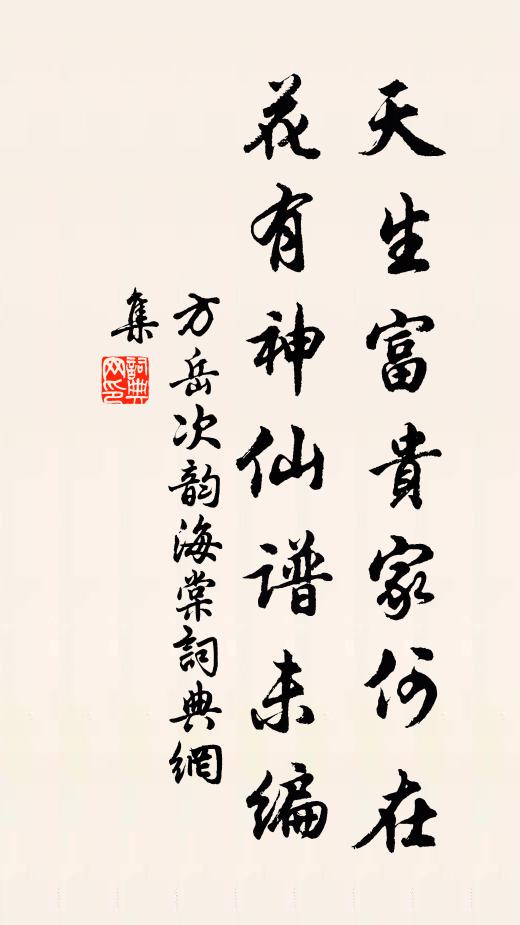 天生富貴家何在
花有神仙譜未編
方岳次韵海棠詞典網
集
詞典网印